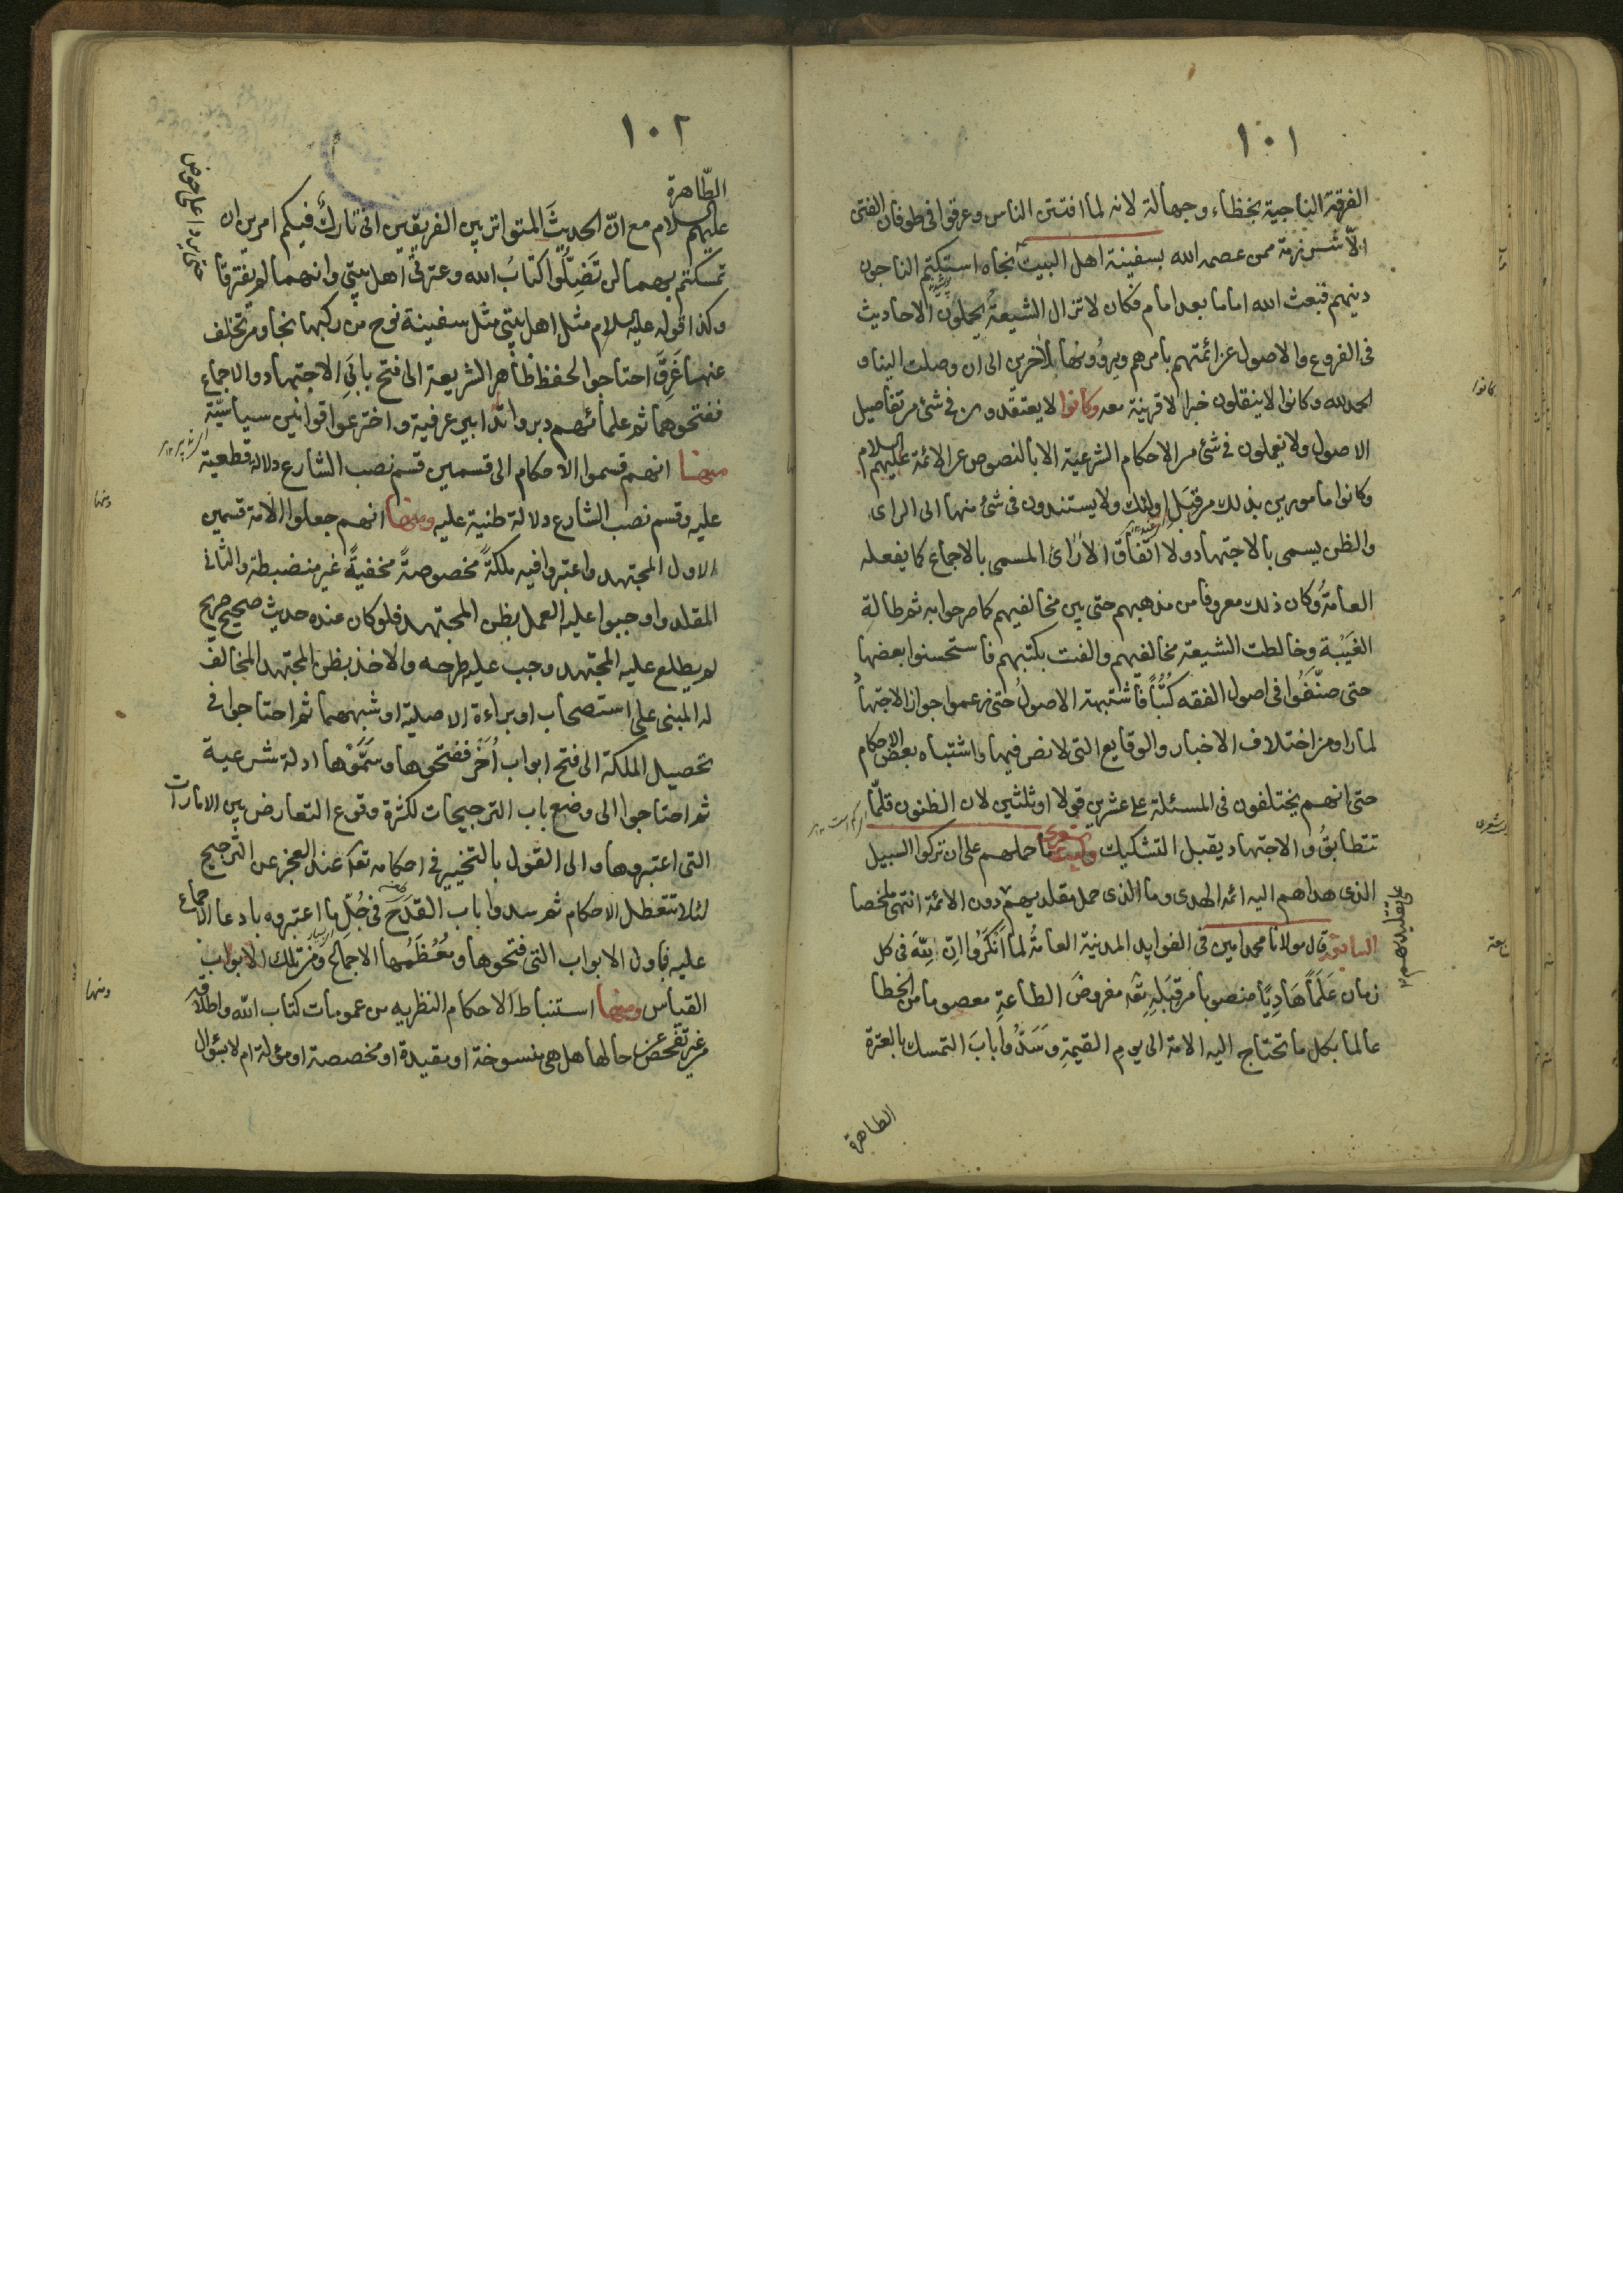 ١٠١
الفرقة الناجية بخطاء وجهالة لانه لما افتتن الناس وغرقوا فى طوفان الفتن
الّا شرذمة ممن عصمه الله بسفينة اهل البيت نجاه استكتم الناجون
دينهم فبعث الله اماما بعد امام فكان لا تزال الشيعة يحملون الاحاديث
فى الفروع والاصول عن ائمتهم بامرهم ويروونها لآخرين الى ان وصلت الينا و
الحمد لله وكانوا لا ينقلون خبرا الا قرينة معه وكانوا لا يعتقدون فى شئ من تفاصيل
الاصول ولا يعملون فى شئ من الاحكام الشرعية الا بالنصوص عن الائمة عليهم السلام
وكانوا مامورين بذلك من قبل اولئك ولا يستندون فى شئ منها الى الراى
والظن يسمى بالاجتهاد ولا اتفاق الآراى المسمى بالاجماع كما يفعله
العامة وكان ذلك معروفا من مذهبهم حتى بين مخالفيهم كما صرحوا به ثم طالة
الغيبة وخالطت الشيعة مخالفيهم والفت بكتبهم فاستحسنوا بعضها
حتى صنّفوا فى اصول الفقه كتبًا فاشتبهة الاصول حتى زعموا جواز الاجتهاد
لما راو من اختلاف الاخبار والوقايع التى لا نص فيها واشتباه بعض الاحكام
حتى انهم يختلفون فى المسئلة على عشرين قولا او ثلثين لان الظنون قلّما
تتطابق والاجتهاد يقبل التشكيك وليت شعرى ما حملهم على ان تركوا السبيل
الذى هداهم اليه ائمه الهدى وما الذى حمل مقلديهم دون الائمة انتهى ملخصا
على تقليدهم
قال مولانا محمد امين فى الفوايد المدنية العامة لما انكروا انّ لله فى كل
زمان عَلَمًا هَادِيًا منصوبا من قِبَلِهِ تعه مفروضَ الطاعةِ معصوما من الخطا
عالما بكل ما تحتاج اليه الامة الى يوم القيمةِ وَسَدُّوا بابَ التمسك بالعترة
الطاهرة
كانوا
١٠٢
الطّاهرة
عليهم السلام مع انّ الحديثَ المتواتر بين الفريقين انى تاركٌ فيكم امرين ان
تمسكتم بهما لن تَضِلُّوا كتابُ الله وعترتى اهل بيتى وانهما لم يفترقا
حتى يردا على حوض
وكذا قوله عليه السلام مثل اهل بيتى مثل سفينة نوح من ركبها نجا ومن تخلف
عنها غَرِقَ احتاجوا لحفظ ظاهر الشريعة الى فتح بابَى الاجتهاد والاجماع
ففتحوهما ثم علمائهم دبروا تدابير عرفية واخترعوا قوانين سياسيّة
منها انهم قسموا الاحكام الى قسمين قسم نصب الشارع دلالة قطعية
عليه وقسم نصب الشارع دلالة ظنية عليه ومنها انهم جعلوا الامة قسمين
الاول المجتهد واعتبروا فيه ملكةً مخصوصةً مخفيةً غير منضبطة والثانى
المقلد واوجبوا عليه العمل بظن المجتهد فلو كان عنده حديث صحيح صريح
لم يطلع عليه المجتهد وجب عليه طرحه والاخذ بظن المجتهد المخالف
له المبنى على استصحاب او براءة الاصلية او شبههما ثم احتاجوا فى
تحصيل الملكة الى فتح ابواب اُخَرَ ففتحوها وسَمَّوْها ادلة شرعية
ثم احتاجوا الى وضع باب الترجيحات لكثرة وقوع التعارض بين الامارات
التى اعتبروها والى القول بالتخيير فى احكامه تعه عند العجز عن الترجيح
لئلا تتعطل الاحكام ثم سدوا باب القدح فى جُلِّ ما اعتبروه بادعا الاجماع
عليه فاول الابواب التى فتحوها ومُعْظَمُها الاجماع ومن تلك الابواب
القياس ومنها استنباط الاحكام النظريه من عمومات كتاب الله واطلاقه
من غير تفحص عن حالها هل هى منسوخة او مقيدة او مخصصة او مؤلة ام لا بسؤال
ومنها
ومنها